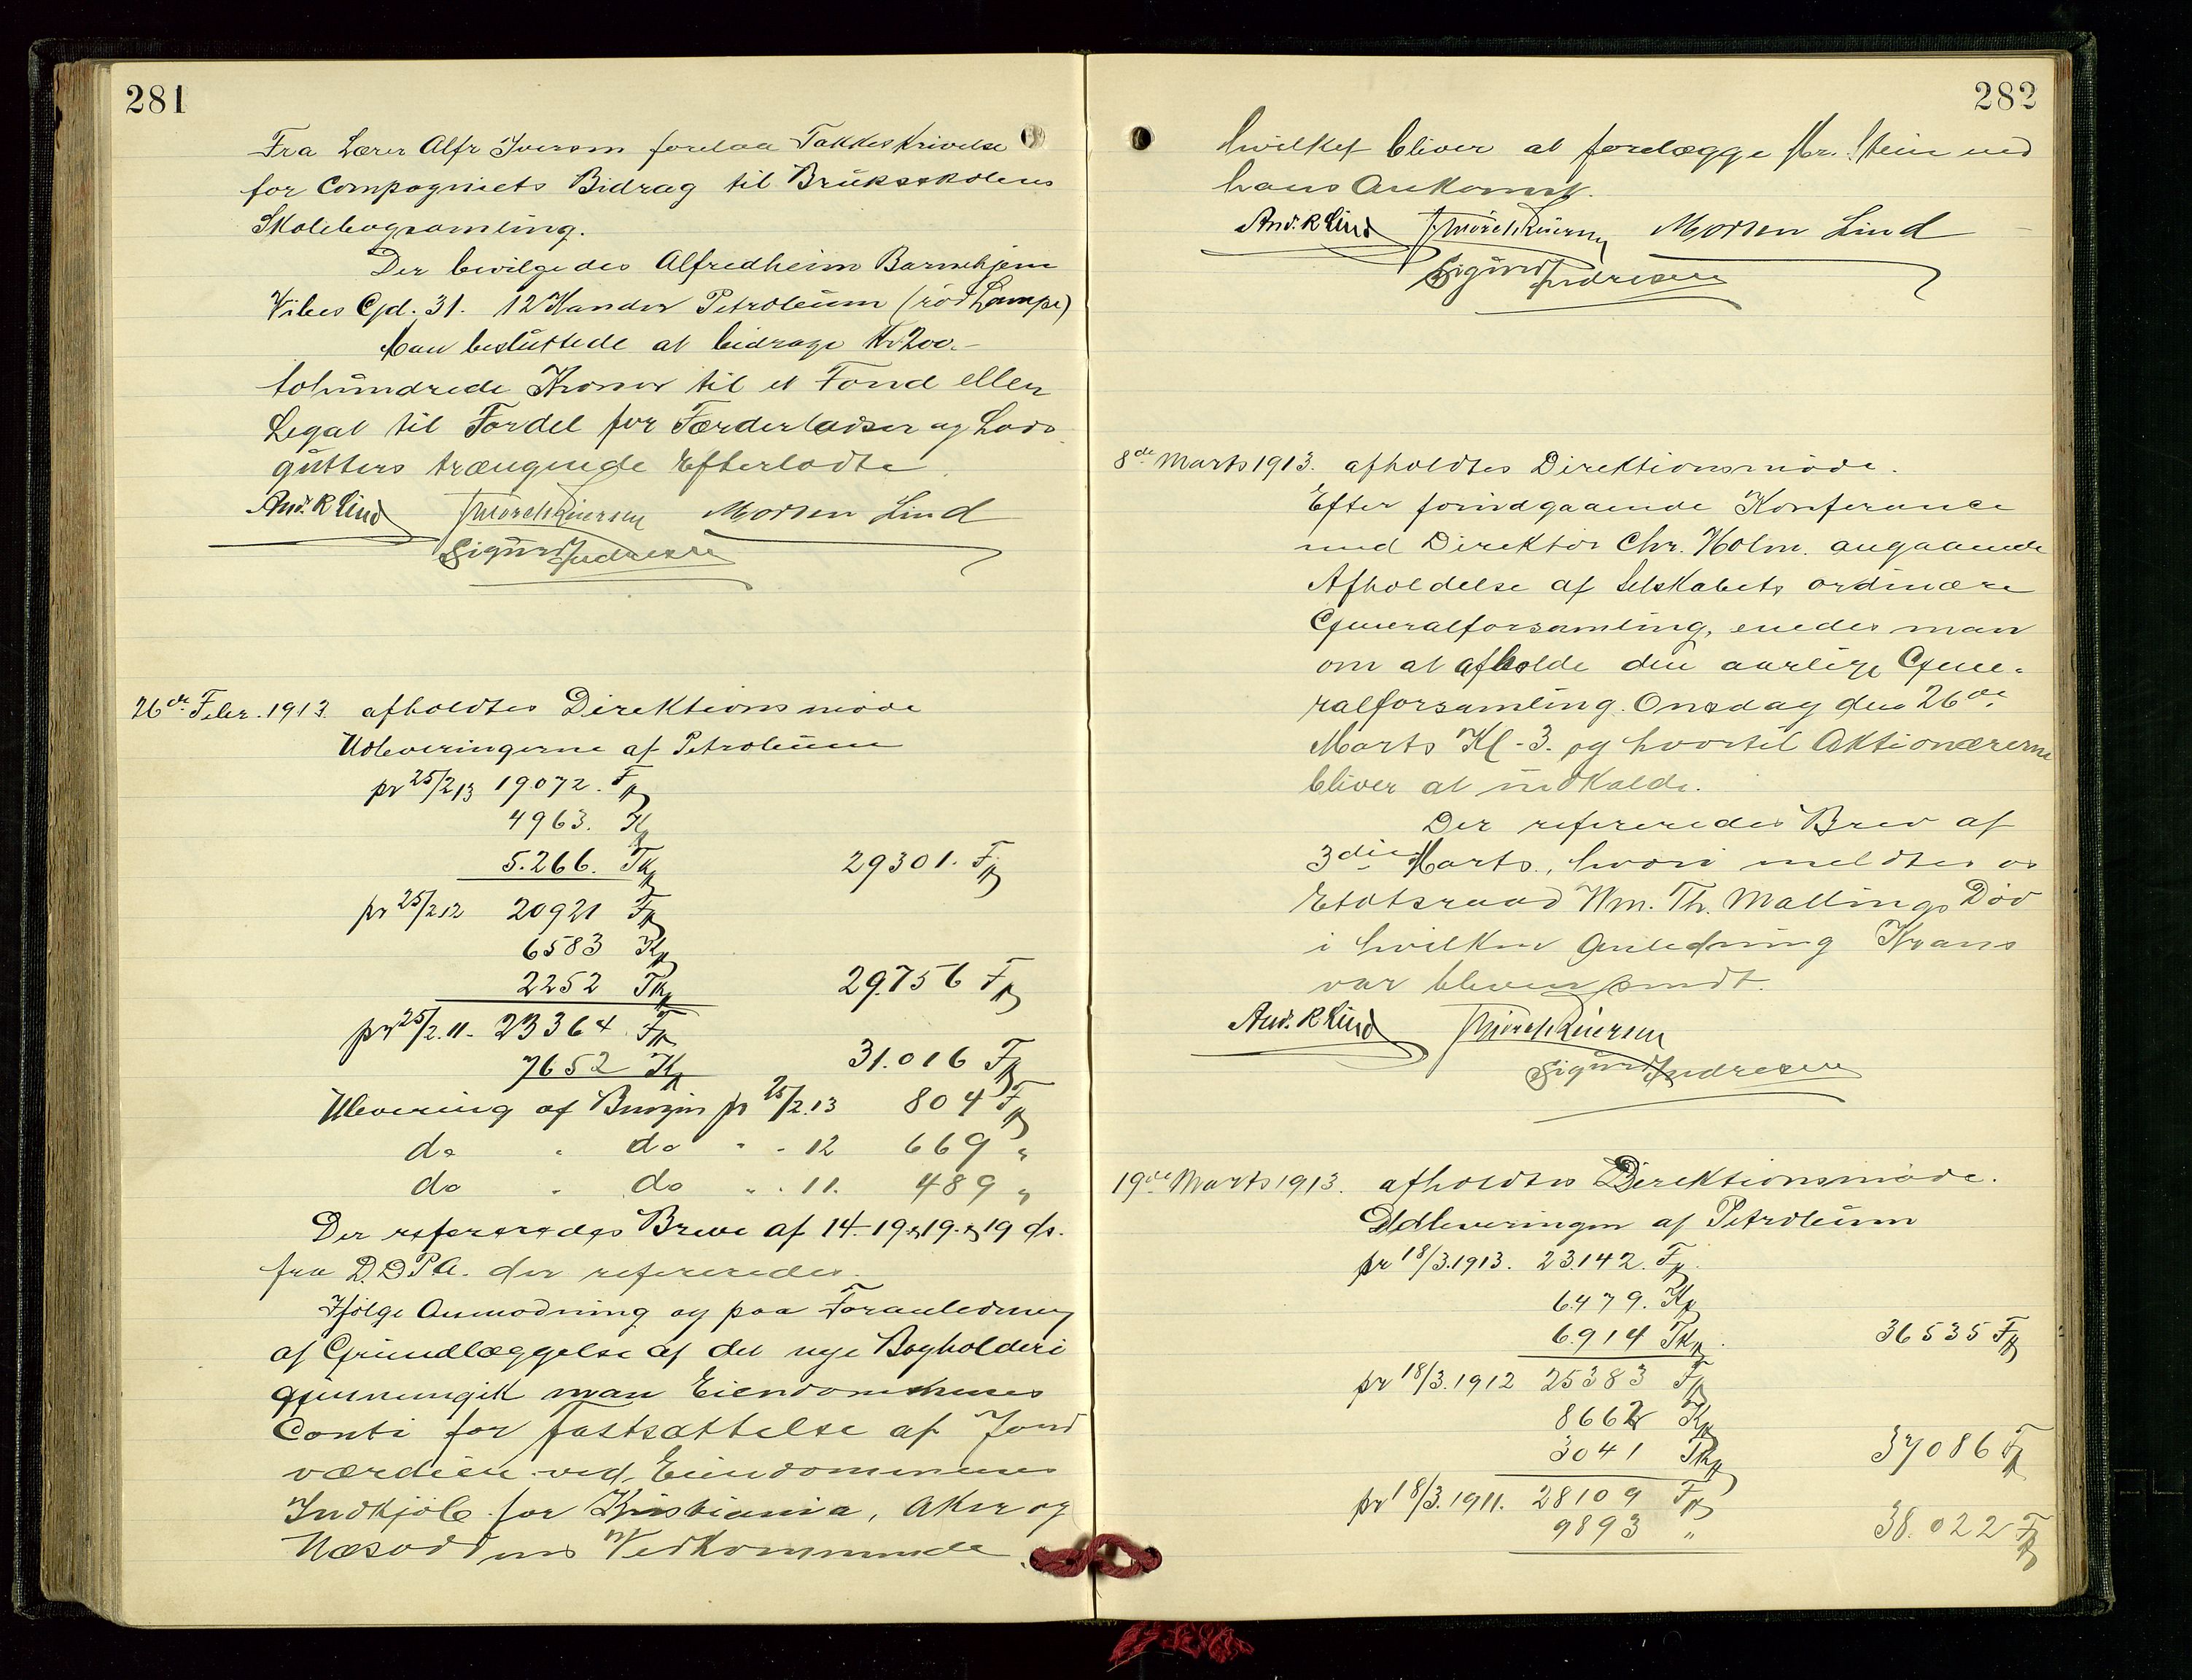 281
Fra Lærer Alfr Iversen forelaa Takkeskrivelse
for Compagniets Bidrag til Bruksskolens
Skolebogsamling.
Der bevilgedes Alfredheim Barnehjem
Vibes Gd. 31. 12 Kander Petroleum (rød Lampe)
Man besluttede at bidrage Kr 200.-
tohundrede Kroner til et Fond eller
Legat til Fordel for Færderlodser og Lods
gutters trængende Efterladte
And. R Lind Mørch Reiersen Morten Lind
Sigurd Andresen
26de Febr. 1913. afholdtes Direktionsmøde
Udleveringerne af Petroleum
pr 25/2 13 19.072. Fp
4963. Kp
5.266. Tkp 29301. Fp
pr 25/2 12 20921 Fp
6583 Kp
2252 Tkp 29.756 Fp
pr 25/2. 11. 23364 Fp
7652 Kp 31.016 Fp
Ulevering af Benzin pr 25/2. 13 804 Fp
do " do " - 12 669 "
do " do " . 11. 489 "
Der refereredes Breve af 14-19 & 19. & 19 ds.
fra D.D.P.A. der refereredes.
Ifølge Anmodning og paa Foranledning
af Grundlæggelse af det nye Bogholderi
gjennemgik man Eiendommenes
Conti for fastsættelse af Jord
værdien ved Eiendommenes
Indkjøb for Kristiania, Aker og
Næsoddens Vedkommende
282
hvilket bliver at forelægge Hr. Stein ved
hans Ankomst.
And. R Lind Mørch Reiersen Morten Lind
Sigurd Andresen
8de Marts 1913. afholdtes Direktionsmøde.
Efter forudgaaende Konferance
med Direktør Chr. Holm. angaaende
Afholdelse af Selskabets ordinære
Generalforsamling, enedes man
om at afholde den aarlige Gene-
ralforsamling Onsdag den 26de
Marts Kl - 3. og hvortil Aktionærerne
bliver at indkalde.
Der refereredes Brev af
3die Marts., hvori meldtes os
Etatsraad Wm. Th. Mallings Død
i hvilken Anledning Krans
var bleven sendt.
And. R Lind Mørch Reiersen
Sigurd Andresen
19de Marts 1913. afholdtes Direktionsmøde.
Udleveringen af Petroleum
pr 18/3. 1913. 23.142. Fp.
6.479. Kp
6.914 Tkp. 36535 Fp
pr 18/3. 1912 25383 Fp
8662 Kp
3041 Tkp 37086 Fp
pr 18/3. 1911. 28109 Fp
9893 " 38.022 Fp